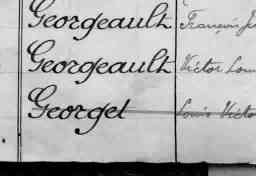 Georgeault François
Georgeault Victor Lou
Georget Louis Victo